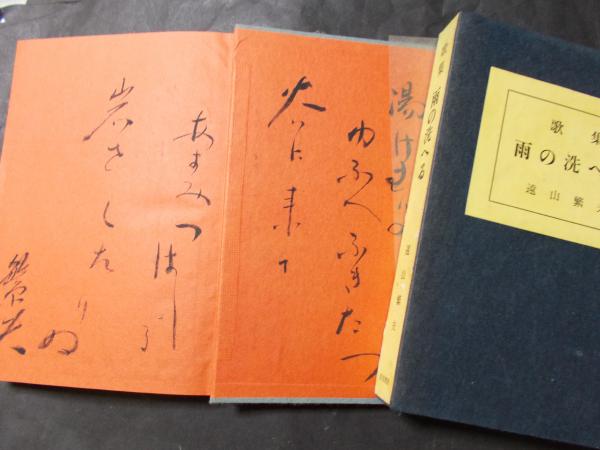 歌集 雨の洗へる 遠山繁夫
歌集
雨の洗へ
遠山繁夫
湯けむりの
ゆふべふきたつ
谷に来て
あまみつはし
岩をしたりぬ
繁夫